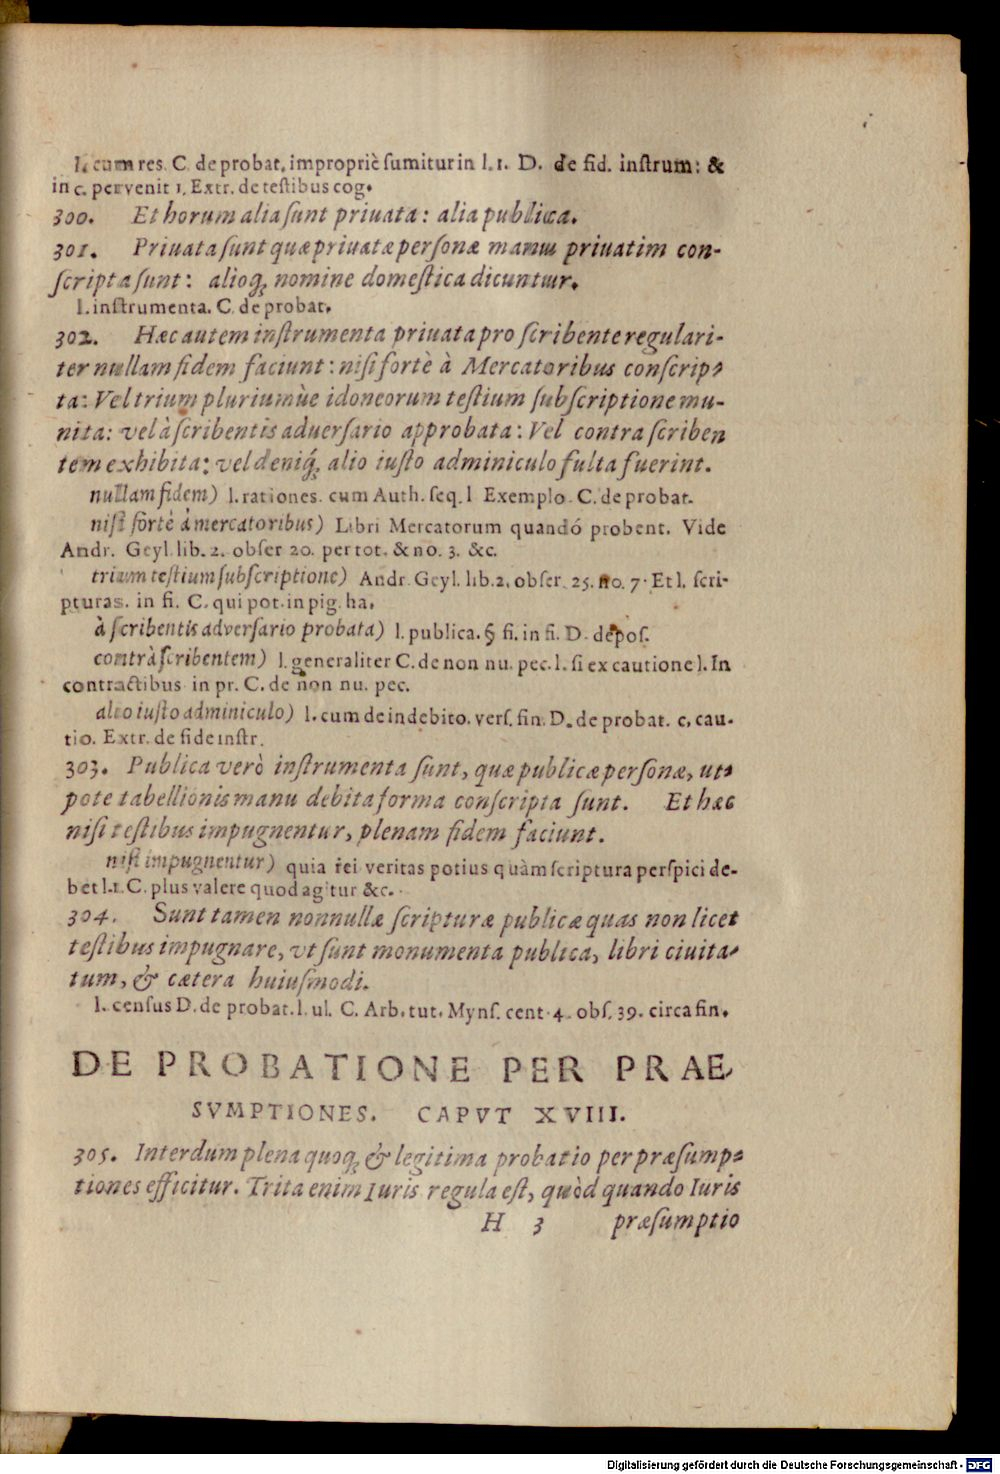 l. cum res. C. de probat. impropriè sumitur in l. 1. D. de fid. instrum: &
in c. pervenit 1. Extr. de testibus cog.
300. Et horum alia sunt priuata: alia publica.
301. Priuata sunt quæ priuatæ personæ manu priuatim con-
scripta sunt: alioq́; nomine domestica dicuntur.
l. instrumenta. C. de probat.
302. Hæc autem instrumenta priuata pro scribente regulari-
ter nullam fidem faciunt: nisi fortè à Mercatoribus conscrip-
ta: Vel trium pluriumùe idoneorum testium subscriptione mu-
nita: vel à scribentis aduersario approbata: Vel contra scriben
tem exhibita: vel deniq́; alio iusto adminiculo fulta fuerint.
nullam fidem) l. rationes. cum Auth. seq. l Exemplo. C. de probat.
nisi fortè à mercatoribus) Libri Mercatorum quandó probent. Vide
Andr. Geyl. lib. 2. obser 20. per tot. & no. 3. &c.
trium testium subscriptione) Andr. Geyl. lib. 2. obser. 25. no. 7. Et l. scri-
pturas. in fi. C. qui pot. in pig. ha.
à scribentis adversario probata) l. publica. § fi. in fi. D. depos.
contrà scribentem) l. generaliter C. de non nu. pec. l. si ex cautione l. In
contractibus in pr. C. de non nu. pec.
alio iusto adminiculo) l. cum de indebito. vers. fin. D. de probat. c. cau-
tio. Extr. de fide instr.
303. Publica verò instrumenta sunt, quæ publicæ personæ, ut-
pote tabellionis manu debita forma conscripta sunt. Et hæc
nisi testibus impugnentur, plenam fidem faciunt.
nisi impugnentur) quia rei veritas potius quàm scriptura perspici de-
bet l. 1. C. plus valere quod agitur &c.
304. Sunt tamen nonnullæ scripturæ publicæ quas non licet
testibus impugnare, vt sunt monumenta publica, libri ciuita-
tum, & cætera huiusmodi.
l. census D. de probat. l. ul. C. Arb. tut. Myns. cent. 4. obs. 39. circa fin.
DE PROBATIONE PER PRAE
SVMPTIONES. CAPVT XVIII.
305. Interdum plena quoq́; & legitima probatio per præsump-
tiones efficitur. Trita enim Iuris regula est, quòd quando Iuris
H 3 præsumptio
Digitalisierung gefördert durch die Deutsche Forschungsgemeinschaft - DFG